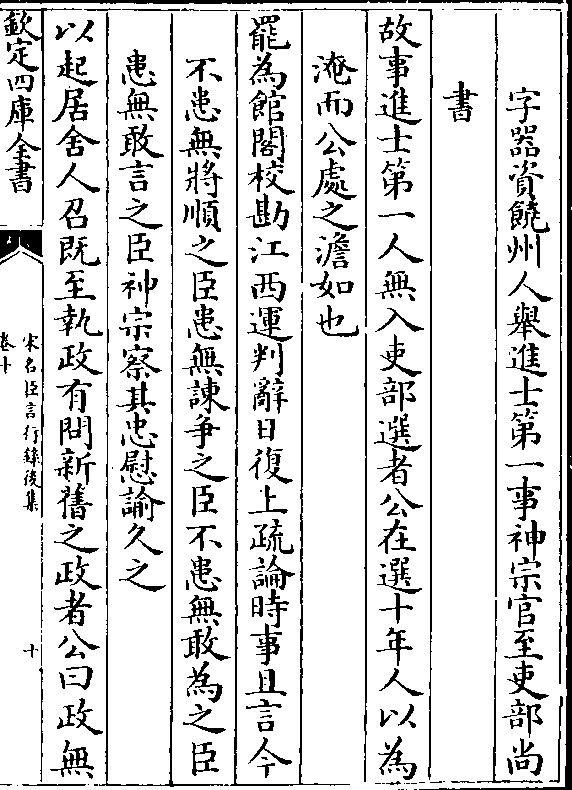 字器資饒州人舉進士第一事神宗官至吏部尚
書
故事進士第一人無入吏部選者公在選十年人以為
淹而公處之澹如也
罷為館閣校勘江西運判辭日復上疏論時事且言今
不患無將順之臣患無諫争之臣不患無敢為之臣
患無敢言之臣神宗察其忠慰諭久之
以起居舍人召既至執政有問新舊之政者公曰政無
欽定四庫全書
宋名臣言行錄後集
卷十
十